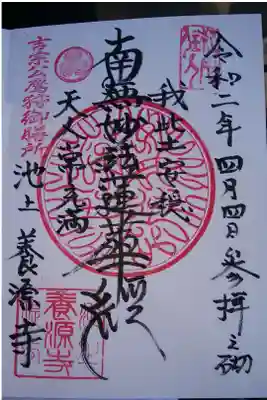 令和二年四月四日参拝之砌
我此土安穏
南無妙法蓮華経
天人常充満
池上 養源寺
吉宗公鷹狩御膳所
養源寺